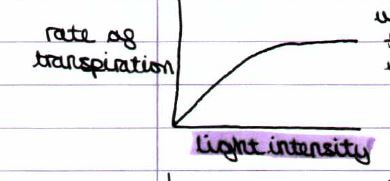 rate of
transpiration
light intensity